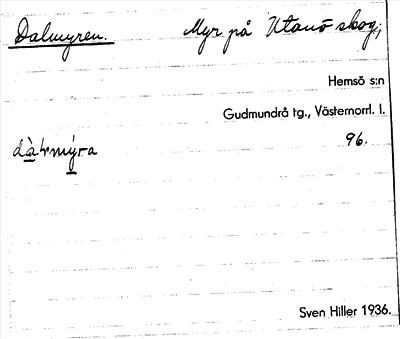 Dalmyren. Myr på Utanö skog;
Hemsö s:n
Gudmundrå tg., Västernorrl. l.
dàlmýra 96.
Sven Hiller 1936.